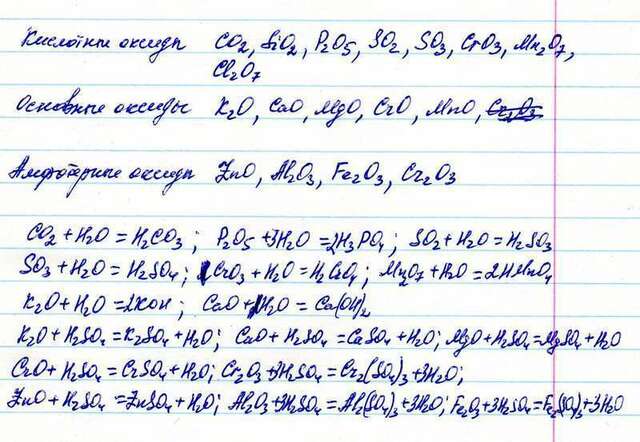 Кислотные оксиды CO2, SiO2, P2O5, SO2, SO3, CrO3, Mn2O7,
Cl2O7
Основные оксиды K2O, CaO, MgO, CrO, MnO, Cr2O3
Амфотерные оксиды ZnO, Al2O3, Fe2O3, Cr2O3
CO2 + H2O = H2CO3; P2O5 + 3H2O = 2H3PO4; SO2 + H2O = H2SO3
SO3 + H2O = H2SO4; CrO3 + H2O = H2CrO4; Mn2O7 + H2O = 2HMnO4
K2O + H2O = 2KOH; CaO + H2O = Ca(OH)2
K2O + H2SO4 = K2SO4 + H2O; CaO + H2SO4 = CaSO4 + H2O; MgO + H2SO4 = MgSO4 + H2O
CrO + H2SO4 = CrSO4 + H2O; Cr2O3 + 3H2SO4 = Cr2(SO4)3 + 3H2O;
ZnO + H2SO4 = ZnSO4 + H2O; Al2O3 + 3H2SO4 = Al2(SO4)3 + 3H2O; Fe2O3 + 3H2SO4 = Fe2(SO4)3 + 3H2O